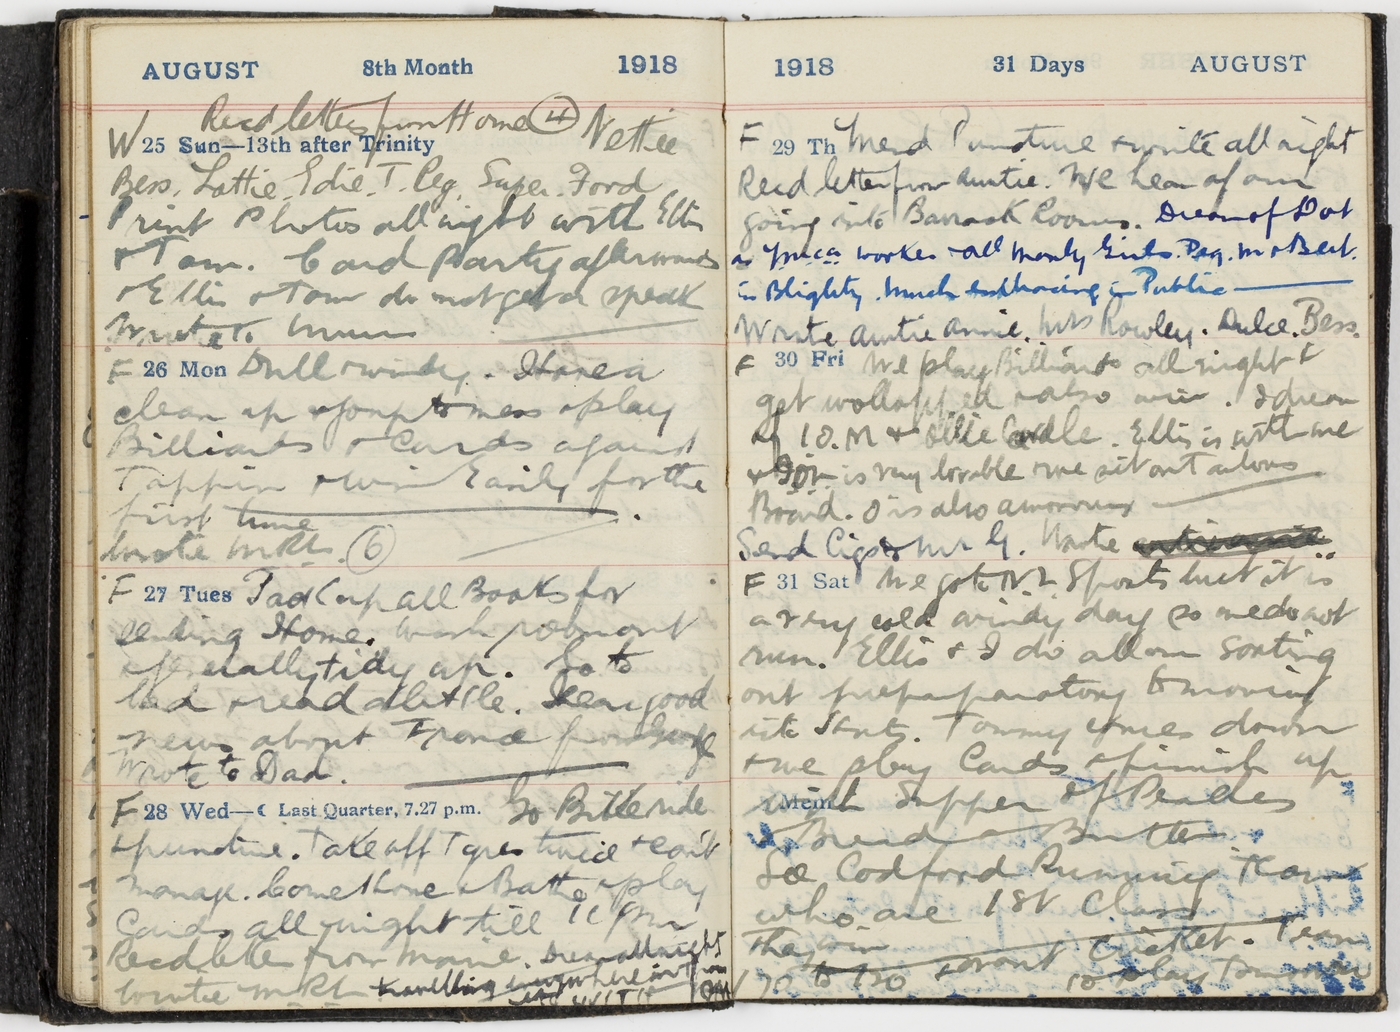 AUGUST 8th Month 1918
Recd letters from Home (4) Nettie
W 25 Sun—13th after Trinity
Bess. Lottie. Edie. T. Peg. Super. Ford
Print Photos all night with Ellis
& Tom. Card Party afterwards
& Ellis & Tom do not get a speak
Wrote to Mum
F 26 Mon Dull & windy. Have a
clean up & jump to mess & play
Billiards & Cards against
Tappin & win Easily for the
first time.
Wrote (6)
F 27 Tues Pack up all Books for
sending Home. Wash room out
& generally tidy up. Go to
bed & read a little. Hear good
news about France from George
Wrote to Dad.
F 28 Wed—☾ Last Quarter, 7.27 p.m. Go Bike ride
& puncture. Take off Tyres twice & can't
manage. Come Home & Bath & play
Cards all night till 11 pm
Recd letter from Marie. Dream all night
Wrote travelling
1918 31 Days AUGUST
F 29 Th Mend Puncture & write all night
Recd letter from Auntie. We hear of our
going into Barrack Rooms. Dream of Dot
as Ymca worker & all Manly Girls. Peg. M & Bert.
in Blighty. Much embracing in Public
Wrote Auntie Annie. Mrs Rowley. Dulce. Bess.
F 30 Fri We play Billiards all night &
get wolloped & also win. I dream
of & Ollie. Ellis is with me
& is very lovable & we sit out
Board. O is also amorous
Send Cigs to Mr G. Wrote
F 31 Sat We go to Sports but it is
a very cold windy day so we do not
run. Ellis & I do all our sorting
out preparatory to moving
into Huts. Tommy comes down
& we play Cards & finish up
Mem. with Supper of Peaches
& Bread & Butter.
See Codford Running Team
who are 1st Class
They win cricket. Team
70 to 120 to play